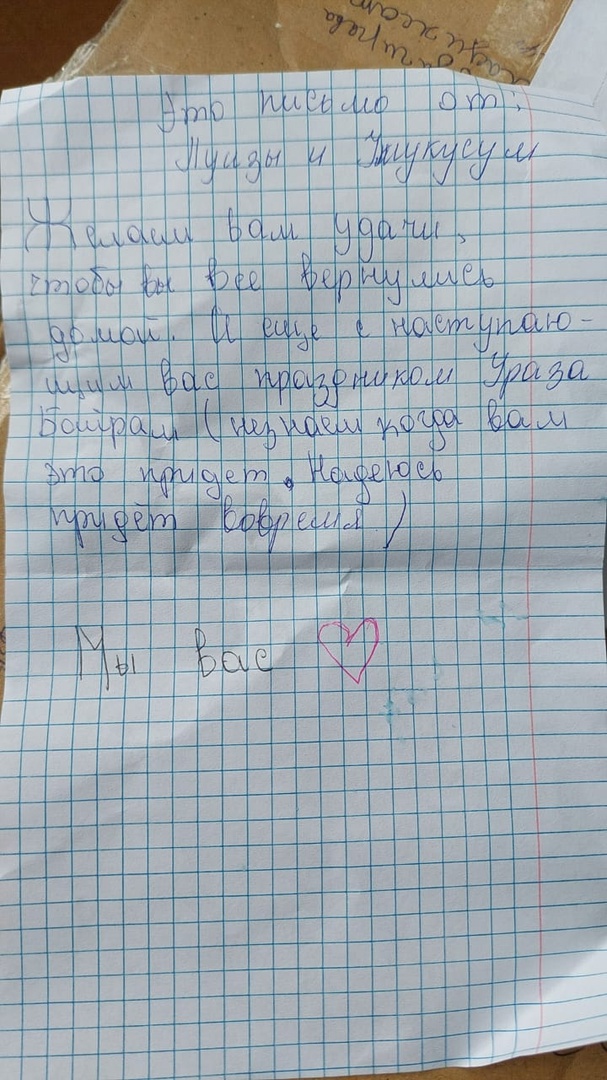 Это письмо от:
Луизы и Умукусум
Желаем вам удачи,
чтобы вы все вернулись
домой. И еще с наступаю-
щим вас праздником Ураза
Байрам (незнаем когда вам
это придет. Надеюсь
придёт вовремя)
Мы вас ♡